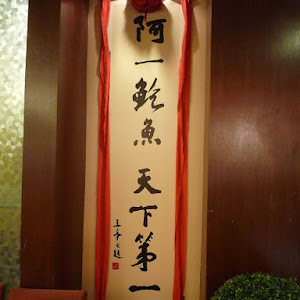 阿一鮑魚天下第一